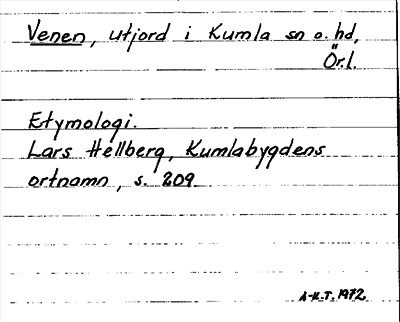 Venen, utjord i Kumla sn o. hd,
Örl.
Etymologi.
Lars Hellberg, Kumlabygdens
ortnamn, s. 209
A-K.T. 1972